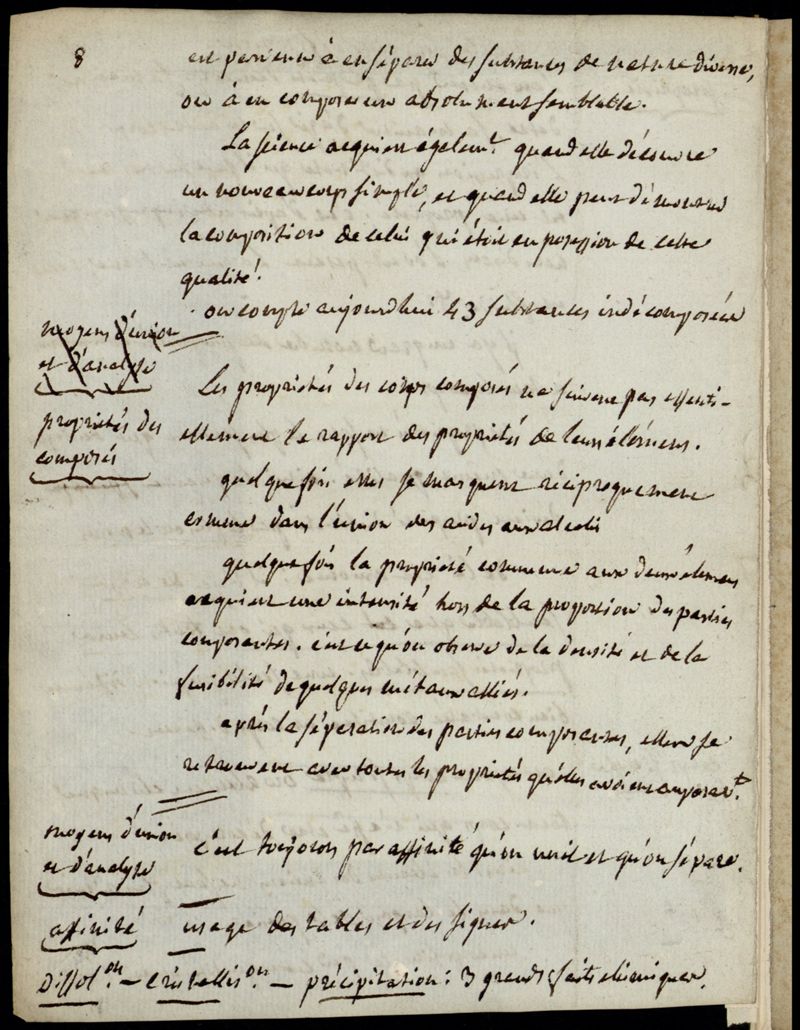 8
est parvenu à en séparer des substances de nature diverse,
ou à en composer un absolument semblable.
La science acquiert égalemt. quand elle découvre
un nouveau corps simple, et quand elle peut démontrer
la composition de celui qui étoit en possession de cette
qualité.
on compte aujourdhui 43 substances indécomposées
moyens d'union
et d'analyse
propriétés des
composés
Les propriétés des corps composés ne suivent pas essenti-
ellement le rapport des propriétés de leurs élémens.
quelquefois elles se masquent réciproquement
comme dans l'union des acides aux alcalis
quelquefois la propriété commune aux deux élemens
acquiert une intensité hors de la proportion des parties
composantes. c'est ce qu'on observe de la densité et de la
fusibilité de quelques métaux alliés.
après la séparation des parties composantes, elles se
retrouvent avec toutes les propriétés qu'elles avoient auparavt.
moyens d'union
et d'analyse
c'est toujours par affinité qu'on unit et qu'on sépare.
affinité
usage des tables et des signes.
Dissolon. – cristallison. – précipitation : 3 grands faits chimiques.